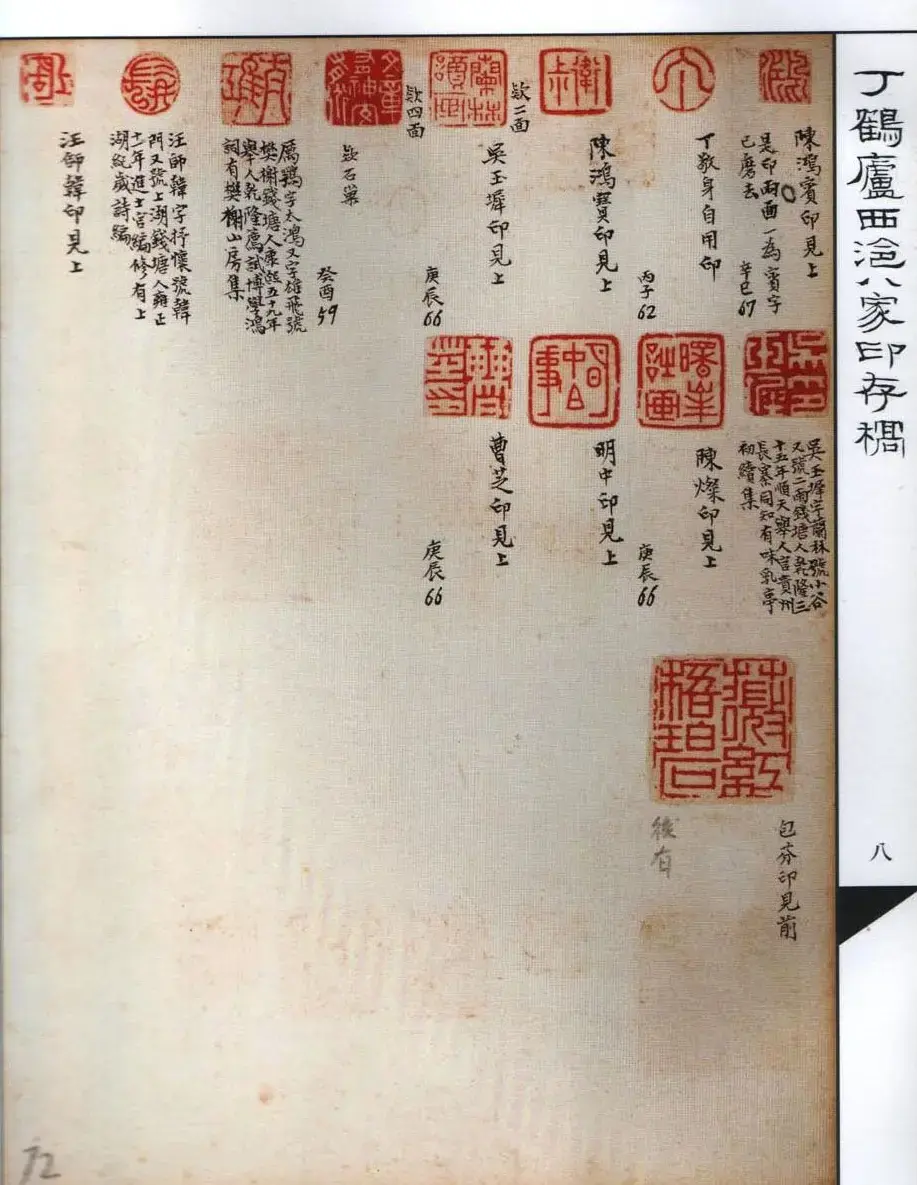 丁鶴廬西泠八家印存稿
八
陳鴻賓印見上
是印兩面一為賓字
已磨去
辛巳67
丁敬身自用印
丙子62
陳鴻寶印見上
款二面
吳玉墀印見上
庚辰66
款四面
款石巢
癸酉59
厲鶚字太鴻又字雄飛號
樊榭錢塘人康熙五十九年
舉人乾隆薦試博學鴻
詞有樊榭山房集
汪師韓字抒懷號韓
門又號上湖錢塘人雍正
十一年進士官編修有上
湖紀歲詩編
汪師韓印見上
吳玉墀字蘭林號小谷
又號二雨錢塘人乾隆三
十五年順天舉人官貴州
長寨同知有味乳亭
初續集
陳燦印見上
庚辰66
明中印見上
曹芝印見上
庚辰66
包芬印見前
後有
72